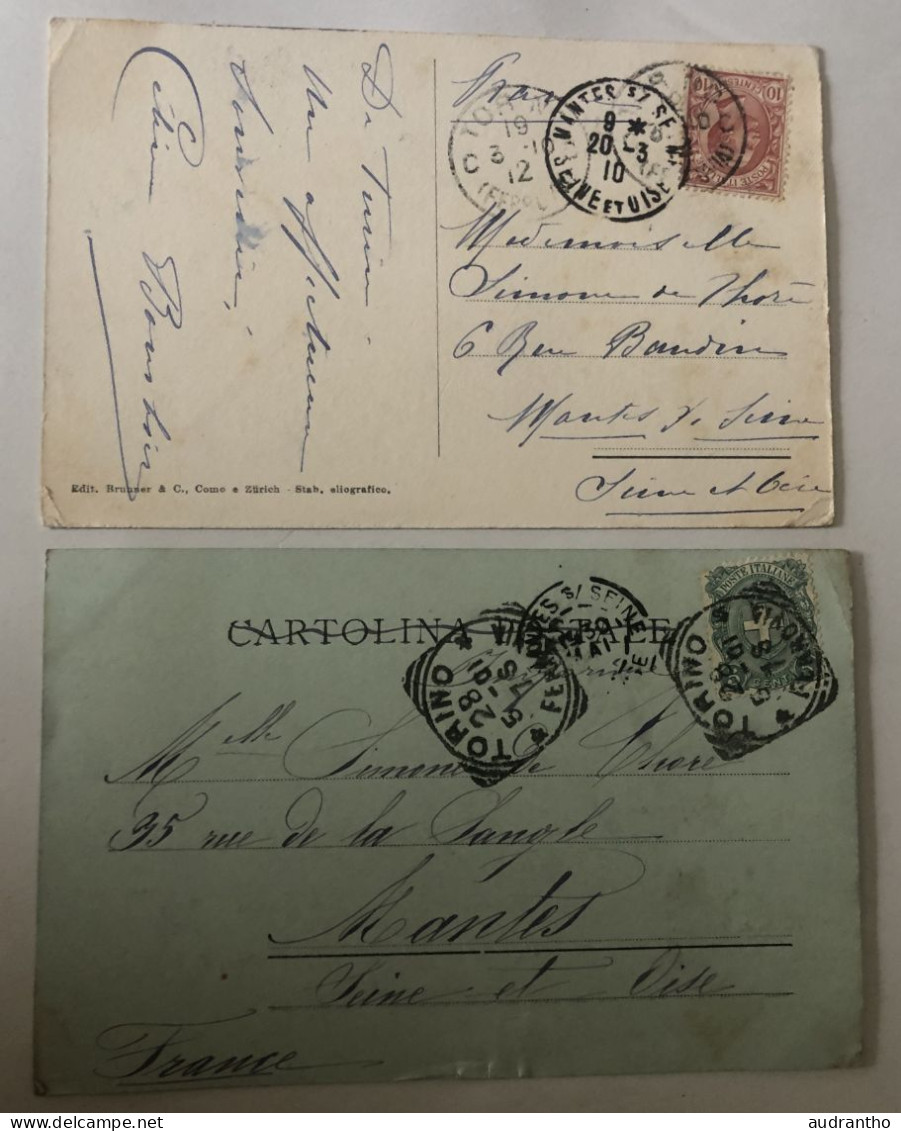 De Turin
Un affectueux
souvenir,
France
TORINO
19
3 10
12
C (FERROVIA)
MANTES S/ SEINE
9 *
20 -3
10
SEINE ET OISE
10
POSTE ITALIANE
Mademoiselle
Simone de Thoré
6 Rue Baudin
Mantes s/ Seine
Seine et Oise
Edit. Brunner & C., Como e Zürich - Stab. eliografico.
CARTOLINA POSTALE
MANTES S/ SEINE
30
MAI
TORINO
28 5 - 01
7 S
FERROVIA
POSTE ITALIANE
TORINO
28 5 - 01
7 S
FERROVIA
Mlle Simone de Thoré
95 rue de la Sangle
Mantes
Seine et Oise
France
audrantho